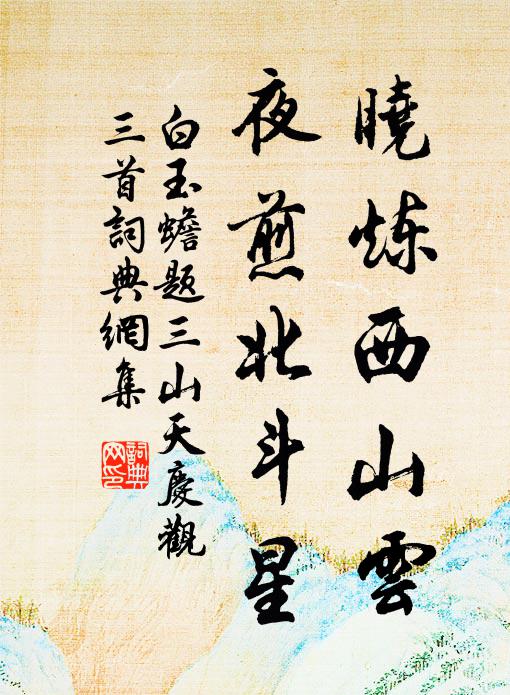 曉炼西山雲
夜煎北斗星
白玉蟾题三山天慶觀
三首詞典網集
詞典
网印